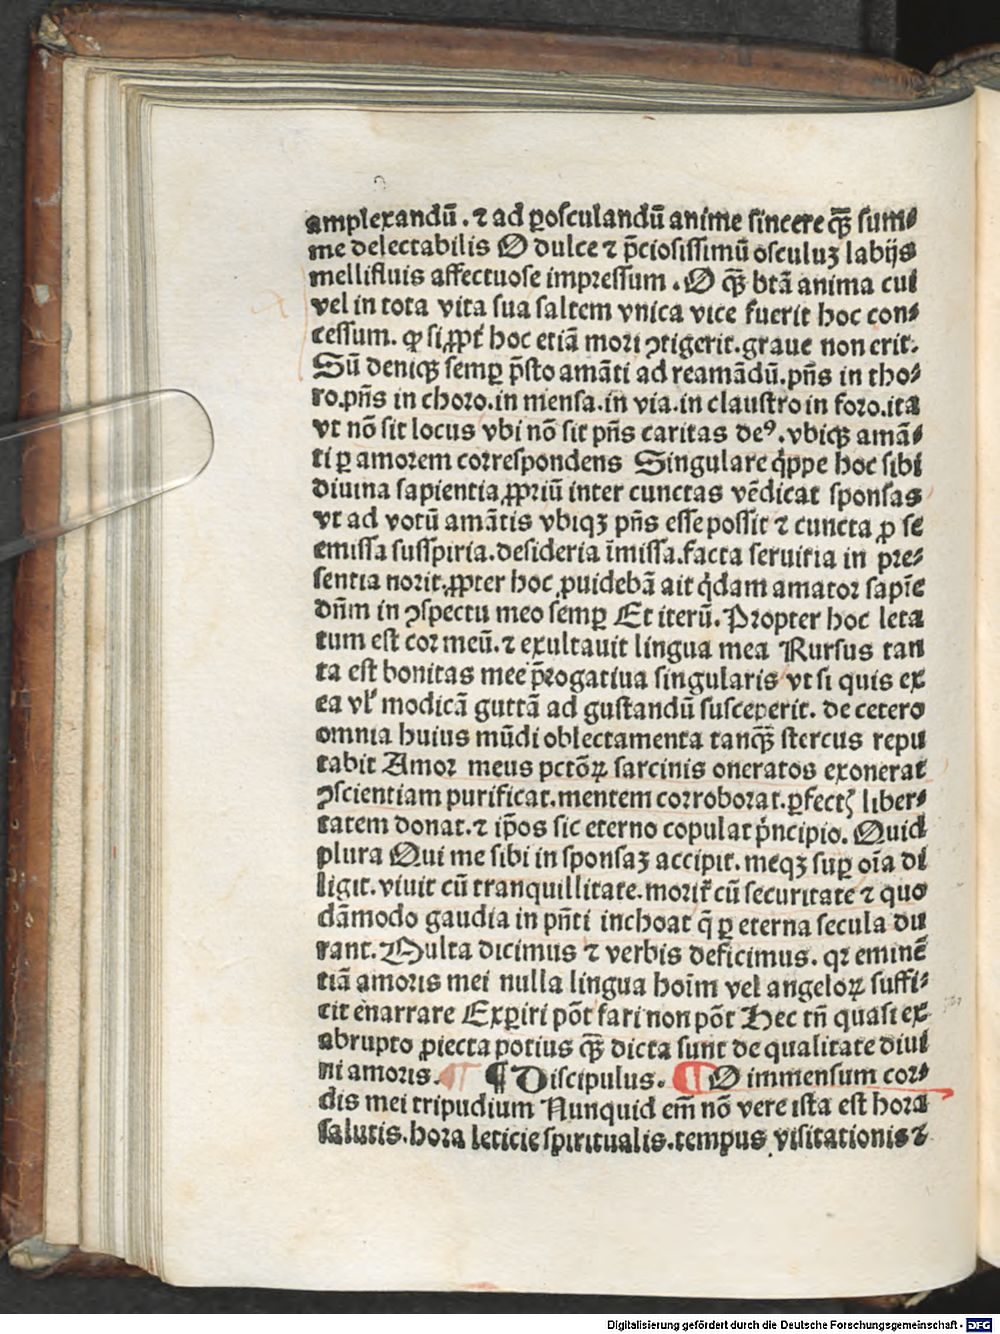 amplexandū. ⁊ ad ꝑosculandū anime sincere qȝ̄ sum⸗
me delectabilis O dulce ⁊ p̄ciosissimū osculuꝫ labijs
mellifluis affectuose impressum. O qȝ̄ btā anima cui
vel in tota vita sua saltem vnica vice fuerit hoc con⸗
cessum. ꝙ si ꝓpt̄ hoc etiā mori ꝯtigerit. graue non erit.
Sū deniqȝ semꝑ p̄sto amāti ad reamādū. pn̄s in tho⸗
ro. pn̄s in choro. in mensa. in via. in claustro in foro. ita
vt nō sit locus vbi nō sit pn̄s caritas deꝰ. vbiqȝ amā⸗
ti ꝑ amorem correspondens Singulare q̇ppe hoc sibi
diuina sapientia ꝓpriū inter cunctas vēdicat sponsas
vt ad votū amātis vbiqꝫ pn̄s esse possit ⁊ cuncta ꝓ se
emissa susspiria. desideria īmissa. facta seruitia in pre⸗
sentia norit. ꝓpter hoc ꝓuidebā ait q̇dam amator sapīe
dn̄m in ꝯspectu meo semꝑ Et iterū. Propter hoc leta
tum est cor meū. ⁊ exultauit lingua mea Rursus tan
ta est bonitas mee p̄rogatiua singularis vt si quis ex
ea vl̓ modicā guttā ad gustandū susceperit. de cetero
omnia huius mūdi oblectamenta tanqȝ̄ stercus repu
tabit Amor meus pctōꝝ sarcinis oneratos exonerat
ꝯscientiam purificat. mentem corroborat. ꝑfectꝭ liber⸗
tatem donat. ⁊ ip̄os sic eterno copulat pṅcipio. Quid
plura Qui me sibi in sponsaꝫ accipit. meqꝫ suꝑ oīa di
ligit. viuit cū tranquillitate. morit᷑ cū securitate ⁊ quo
dāmodo gaudia in pn̄ti inchoat q̄ ꝑ eterna secula du
rant. Multa dicimus ⁊ verbis deficimus. qꝛ eminē
tiā amoris mei nulla lingua hoīm vel angeloꝝ suffi⸗
cit enarrare Exꝑiri pōt fari non pōt Hec tn̄ quasi ex
abrupto ꝓiecta potius qȝ̄ dicta sunt de qualitate diui
ni amoris. ¶ ¶ Discipulus. ¶ O immensum cor⸗
dis mei tripudium Nunquid em̄ nō vere ista est hora
salutis. hora leticie spiritualis. tempus visitationis ⁊
Digitalisierung gefördert durch die Deutsche Forschungsgemeinschaft - DFG